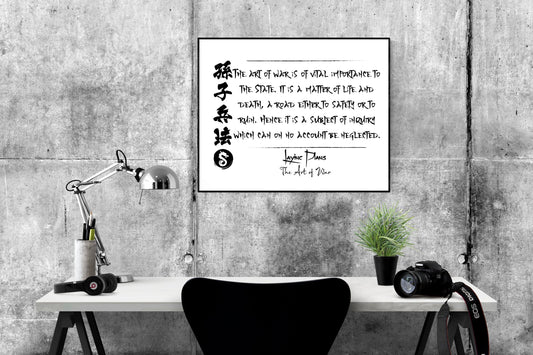 孫子兵法
The Art of War is of vital importance to
the State. It is a matter of life and
death, a road either to safety or to
ruin. Hence it is a subject of inquiry
which can on no account be neglected.
Laying Plans
The Art of War
S
EOS